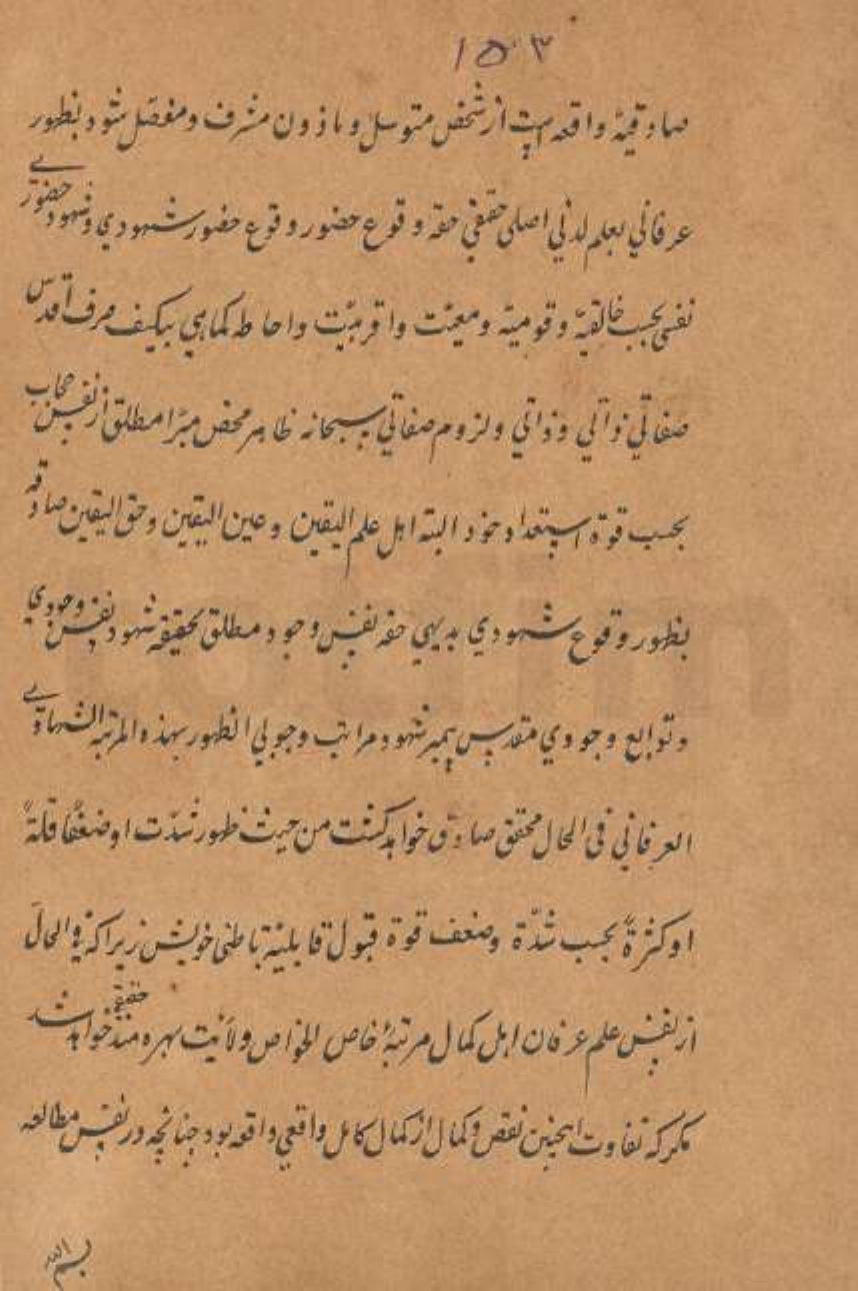 ١٥٣
صادقیهٔ واقعه است از شخص متوسل و ماذون مشرف و مفصل شود بظهور
عرفانی بعلم لدنی اصلی حقیقی حقه وقوع حضور وقوع حضور شهودی و شهود حضوری
نفسی بحسب خالقیة وقومیة ومعیت واقربیت واحاطه کماهی بیکیف صرف اقدس
صفاتی نوالی وذاتی ولزوم صفاتی سبحانه ظاهر محض مبرا مطلق از نفس حجاب
بحسب قوة استعداد خود البته اهل علم الیقین و عین الیقین وحق الیقین صادقه
بظهور وقوع شهودی بدیهی حقه نفس وجود مطلق بحقیقه شهود نفس وجودی
وتوابع وجودی مقدس شهود مراتب وجوبی الظهور بهذه المرتبه الشهادی
العرفانی فی الحال محقق صادق خواهد کشت من حیث ظهور شدّت او ضعفًا قلةً
او کثرةً بحسب شدّة وضعف قوة قبول قابلیة باطنی خویش زیرا که فی الحالَ
از نفس علم عرفان اهل کمال مرتبهٔ خاص الخواص ولایت بهره مند حقیقی خواهد شد
مکر که تفاوت اینچنین نقص و کمال از کمال کامل واقعی واقعه بود چنانچه در نفس مطالعه
بسم الله